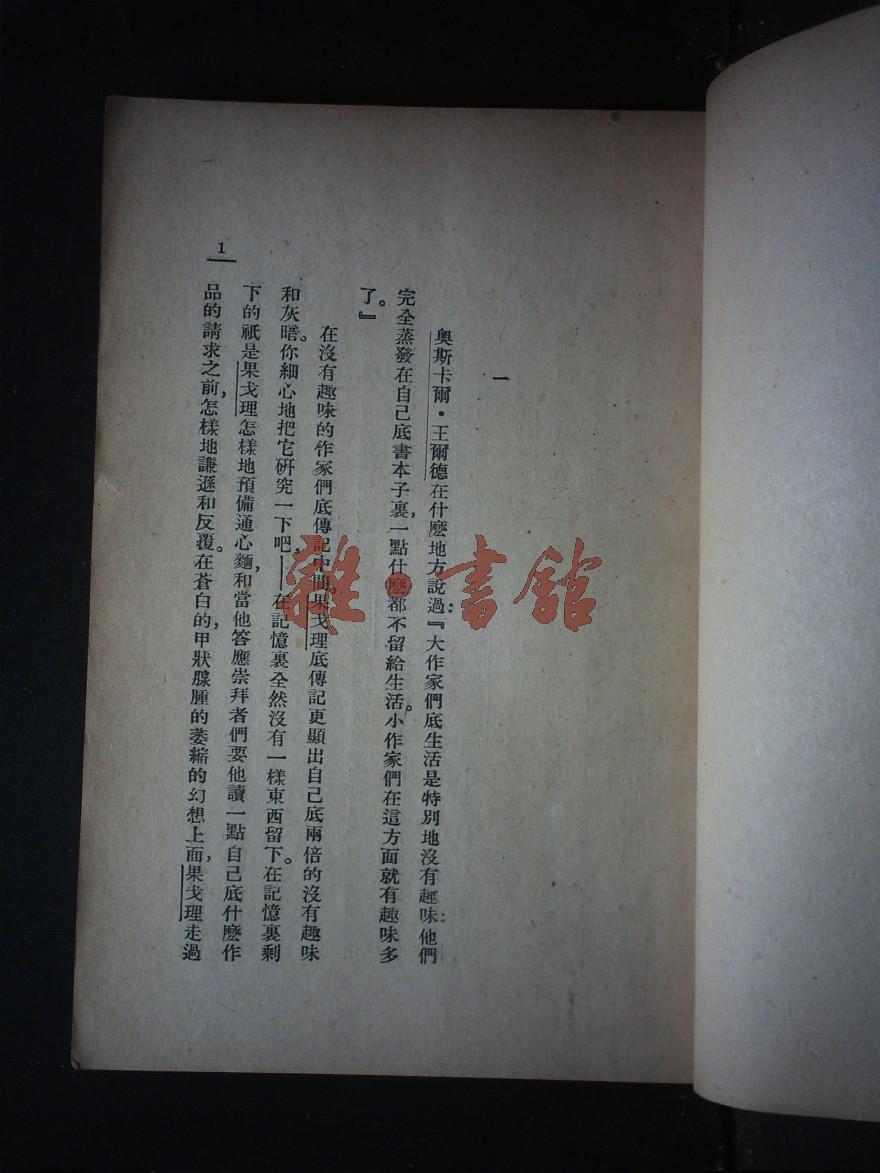 一
奧斯卡爾・王爾德在什麽地方說過：『大作家們底生活是特別地沒有趣味：他們
完全蒸發在自己底書本子裏，一點什麽都不留給生活。小作家們在這方面就有趣味多
了。』
在沒有趣味的作家們底傳記中間，果戈理底傳記更顯出自己底兩倍的沒有趣味
和灰暗。你細心地把它研究一下吧，——在記憶裏全然沒有一樣東西留下。在記憶裏剩
下的祇是果戈理怎樣地預備通心麵，和當他答應崇拜者們要他讀一點自己底什麽作
品的請求之前，怎樣地謙遜和反覆。在蒼白的，甲狀腺腫的萎縮的幻想上面，果戈理走過
1
雜・書館